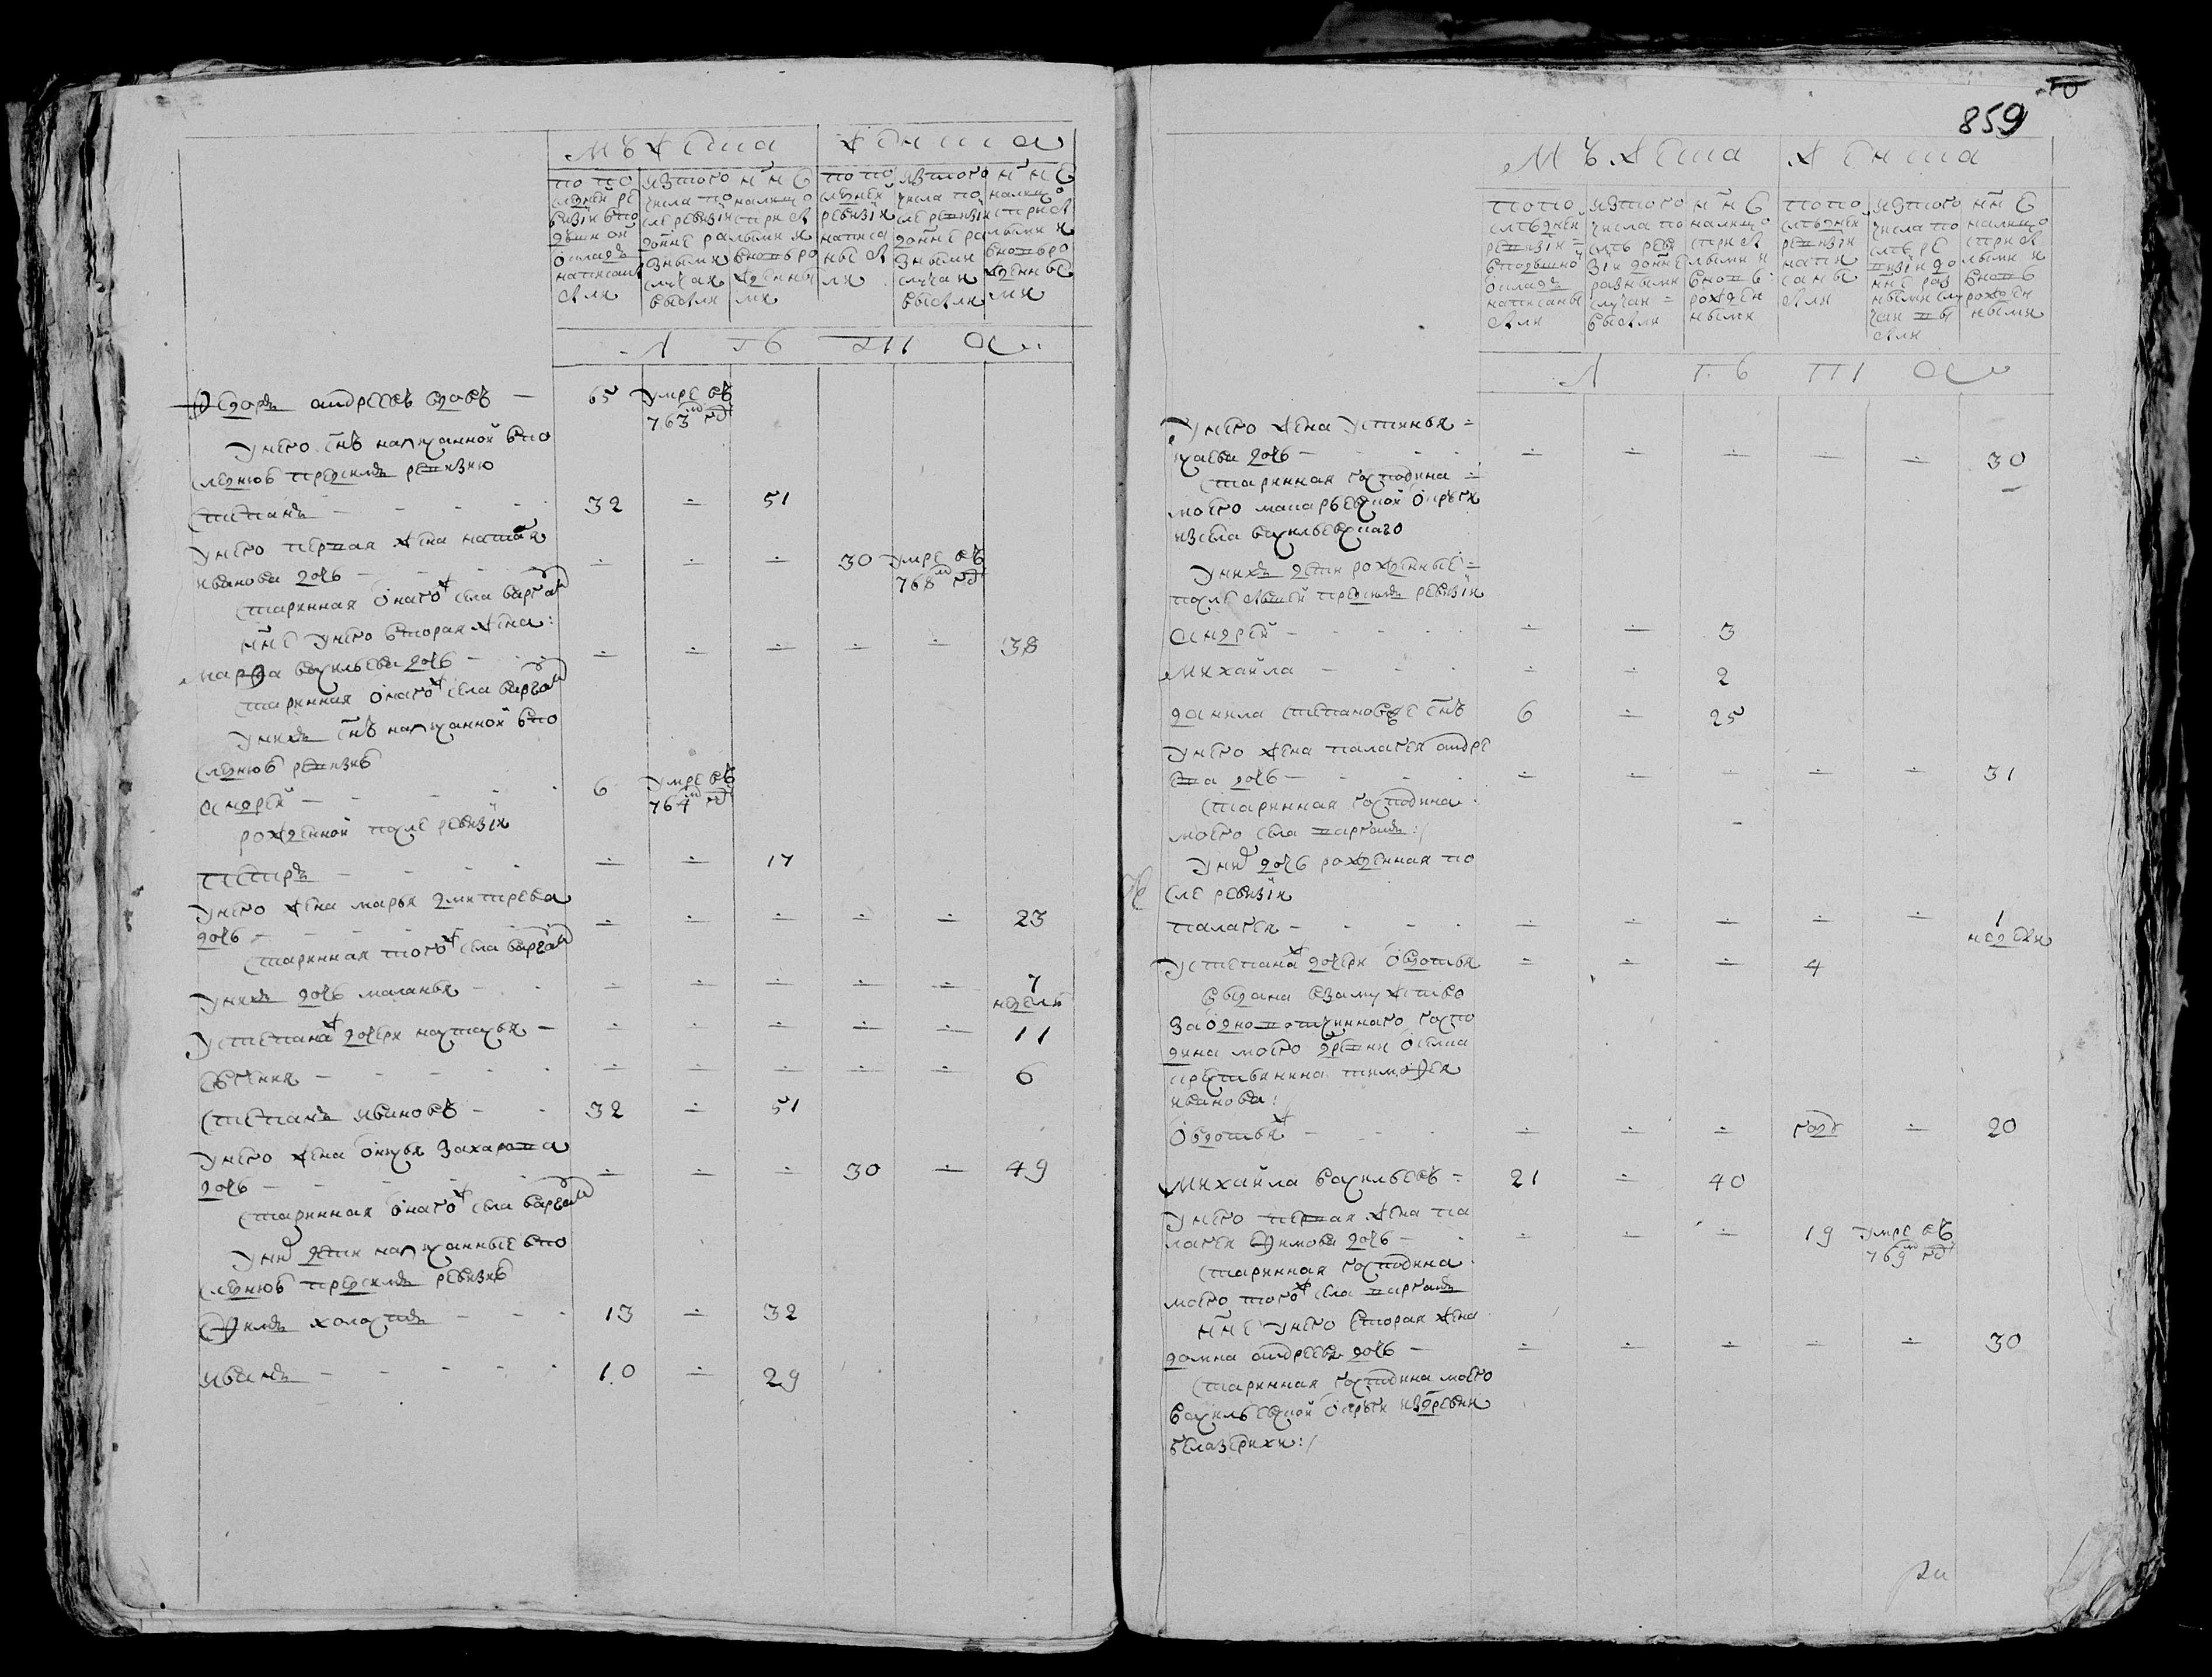 мужеска
женска
по по
следней ре
визiи в по
душной
окладъ
написан
были
из того
числа по
сле ревизiи
до нне ра
зными
случаи
выбыли
нне
на лицо
с при бы
лыми и
вновь ро
жденны
ми
по по
следней
ревизiи
написа
ны бы
ли
из того
числа по
сле ревизiи
до нне ра
зными
случаи
выбыли
нне
на лицо
с при бы
лыми и
вновь ро
жденны
ми
лѣта
Федоръ андреевъ вдовъ
65
умре въ
763м год
У него снъ написанной в по
следнюю пред симъ ревизию
степанъ
32
51
У него первая жена наталья
иванова дочь
30
умре въ
768м год
старинная онаго ж села варган
нне у него вторая жена
марфа васильева дочь
38
старинная онаго ж села варган
У нихъ снъ написанной в по
следнюю ревизию
андрей
6
умре въ
764м год
рожденной после ревизiи
петръ
17
У него жена марья дмитрева
дочь
23
старинная того ж села варган
У нихъ дочь маланья
7
недель
У степана ж дочери настасья
11
евгения
6
степанъ ивановъ
32
51
У него жена Окулья Захарова
дочь
30
49
старинная онаго ж села варган
У них дети написанные в по
следнюю пред симъ ревизию
Фимъ холостъ
13
32
иванъ
10
29
859
мужеска
женска
по по
следней
ревизiи
в подушной
окладъ
написаны
были
из того
числа по
сле реви
зiи до нне
разными
случаи
выбыли
нне
на лицо
с при бы
лыми и
вновь
рожден
ными
по по
следней
ревизiи
напи
саны
были
из того
числа по
сле ре
визiи до
нне раз
ными слу
чаи вы
были
нне
на лицо
с при бы
лыми и
вновь
рожден
ными
лѣта
У него жена Устинья
исаева дочь
30
старинная господина
моего макарьевской округи
из села васильевскаго
У нихъ дети рожденные
после бывшей пред симъ ревизiи
андрей
3
михайла
2
данила степановъ снъ
6
25
У него жена палагея андре
ева дочь
31
старинная господина
моего села варганъ
У них дочь рожденная по
сле ревизiи
палагея
1
недели
У степана ж дочери Овдотья
4
выдана в замужство
за одновотчиннаго госпо
дина моего древни Оселка
крестьянина тимофея
иванова
Овдотья ж
год
20
Михайла васильевъ
21
40
У него первая жена па
лагея Фимова дочь
19
умре въ
769м год
старинная господина
моего того ж села варганъ
нне у него вторая жена
домна андреева дочь
30
старинная господина моего
васильевской округи из древни
белазерихи